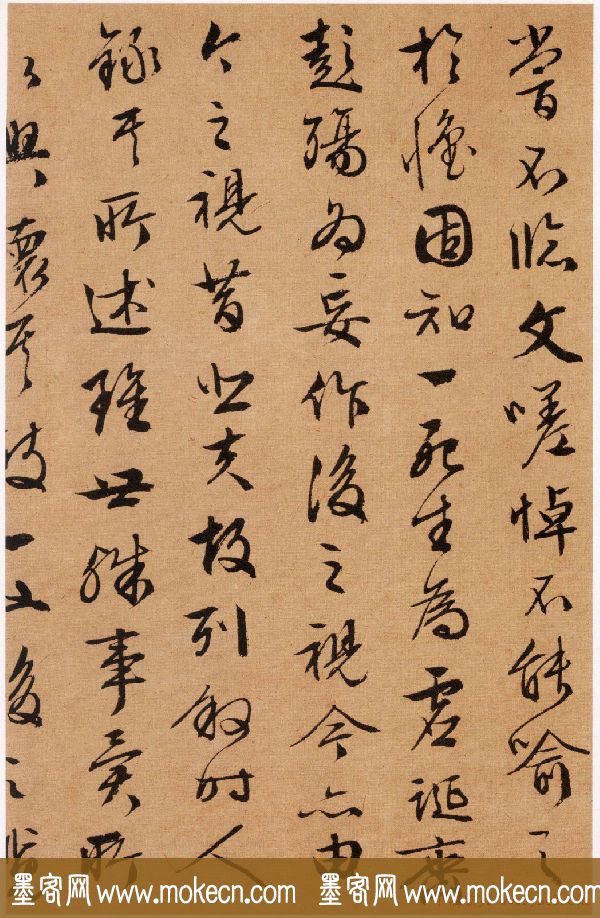 嘗不臨文嗟悼不能喻之
於懷固知一死生為虛誕齊
彭殤為妄作後之視今亦由
今之視昔悲夫故列叙時人
錄其所述雖世殊事異所
以興懷其致一也後之覽
墨客网 www.mokecn.com 墨客网 www.mokecn.com